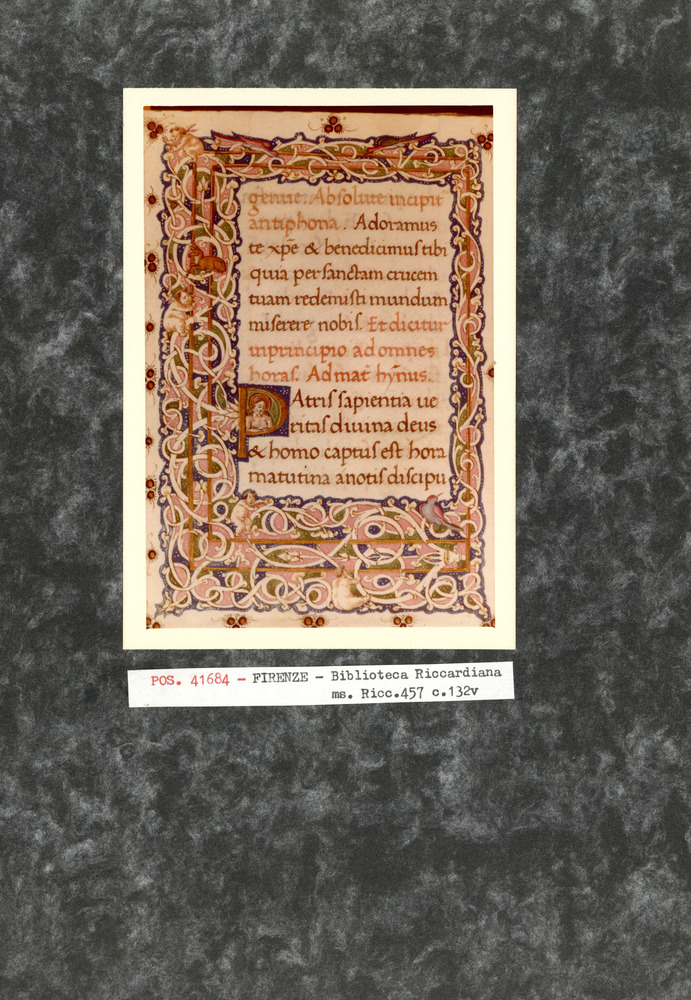 genue. Absolute incipit
antiphona. Adoramus
te xpē & benedicimus tibi
quia per sanctam crucem
tuam redemisti mundum
miserere nobis. Et dicitur
inprincipio ad omnes
horas. Ad mat hȳnus.
PAtris sapientia ue
ritas diuina deus
& homo captus est hora
matutina anotis discipu
POS. 41684 - FIRENZE - Biblioteca Riccardiana
ms. Ricc.457 c.132v